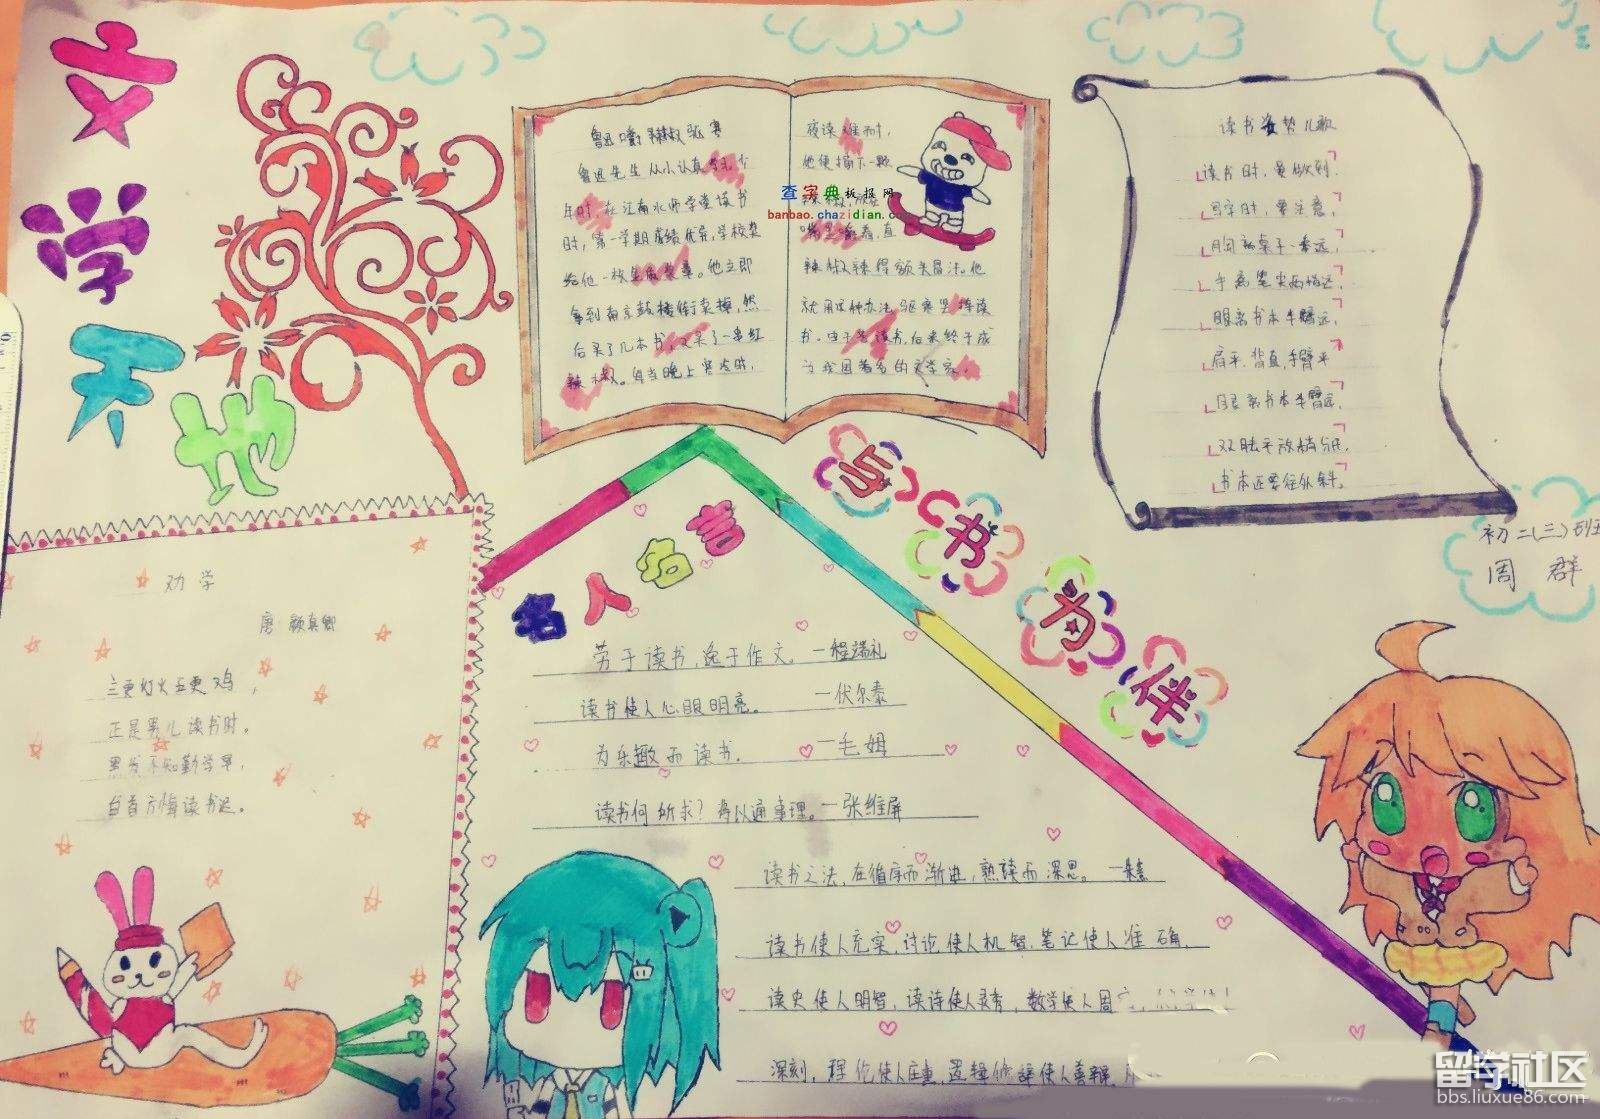 文学天地
鲁迅嚼辣椒驱寒
鲁迅先生从小认真学习。少
年时,在江南水师学堂读书
时,第一学期成绩优异,学校奖
给他一枚金质奖章。他立即
拿到南京鼓楼街卖掉,然
后买了几本书,又买了一串红
辣椒。每当晚上寒冷时,
夜读难耐,
他便摘下一颗
嘴里嚼着,直
辣椒辣得额头冒汗。他
就用这种办法驱寒坚持读
书。由于苦读书,后来终于成
为我国著名的文学家。
查字典板报网
banbao.chazidian.com
读书姿势儿歌
读书时,要做到.
写字时,要注意,
胸离桌子一拳远,
手离笔尖两指远,
眼离书本半臂远,
肩平.背直,手臂平
书本还要往外斜。
初二(三)班
周群
与书为伴
劝学
唐 颜真卿
三更灯火五更鸡,
正是男儿读书时。
黑发不知勤学早,
白首方悔读书迟。
名人名言
劳于读书,逸于作文。—程端礼
读书使人心眼明亮。—伏尔泰
为乐趣而读书.—毛姆
读书何所求?将以通事理。—张维屏
读书之法,在循序而渐进,熟读而深思。—朱熹
读书使人充实,讨论使人机智,笔记使人准确,
读史使人明智,读诗使人灵秀,数学使人周
深刻,理伦使人庄重,逻辑修辞使人善辩,
留学社区
bbs.liuxue86.com